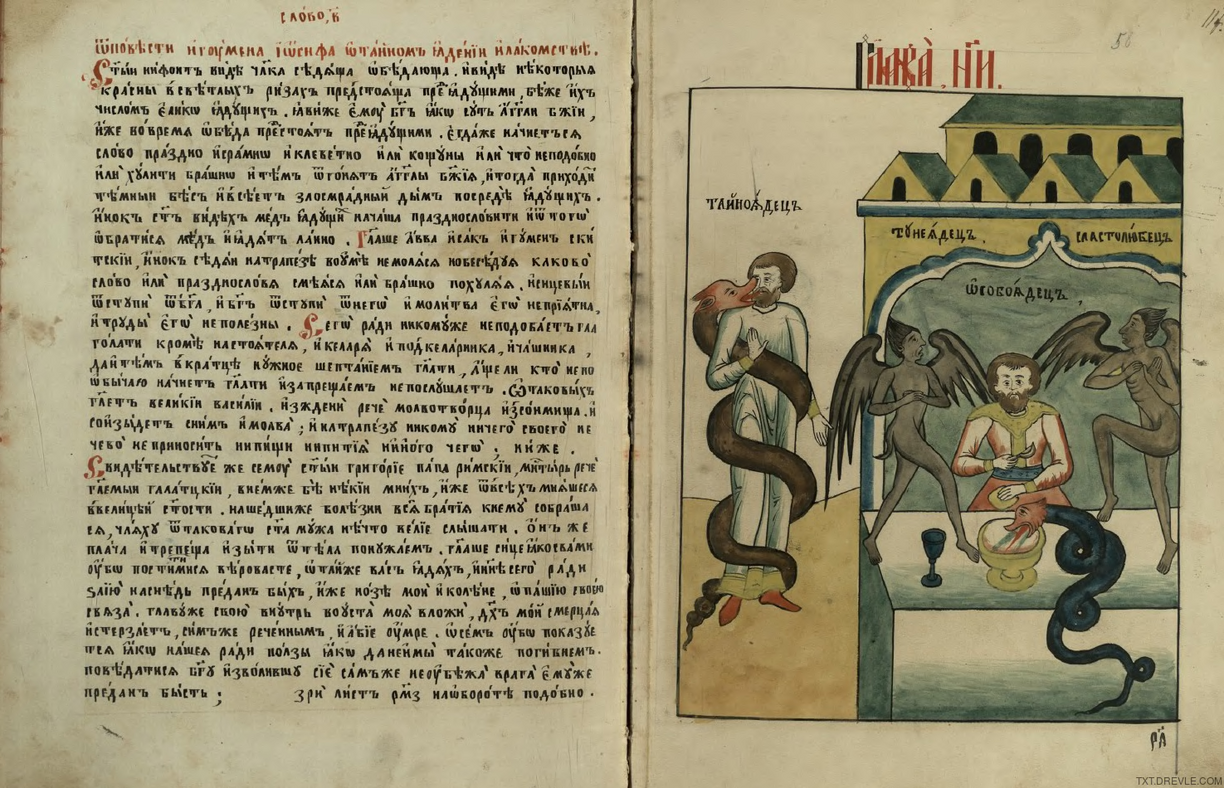 слово, в҃
Ѿповѣсти игоумена Іѡсифа ѡтайномъ ꙗденїи илакомствѣ.
Стый нифонтъ видѣ чл҃ка сѣдѧща ѡбѣдающа. ивидѣ нѣкоторыѧ
красны всвѣтлыхъ ризахъ предстоѧща пре꙽ꙗдущими, бѣже ихъ
числомъ єликѡ ꙗдущихъ. ꙗвиже ємоу бг҃ъ ꙗкѡ суть а҆гг҃ли бж҃їи,
иже вовремѧ ѡбѣда престоѧтъ преꙗдущими. єгдаже начнетъсѧ
слово праздно исрамнѡ иклеветно или кощуны или что неподобно
или хулити брашнѡ итѣмъ ѿгонѧтъ а҆гг҃лы бж҃їѧ, итогда приходи
тѣмный бѣсъ ивсѣетъ злосмрадный дымъ посредѣ ꙗдущихъ.
инокъ ст҃ъ видѣхъ медъ ꙗдущи иначаша празднословити иѿтогѡ
ѡбратисѧ медъ иꙗдѧтъ лайно. Гл҃аше а҆вва исакъ игуменъ ски
тскїи, инокъ сѣдѧи натрапезѣ воумѣ немолѧсѧ нобесѣдуѧ каково
слово или празднословѧ смѣѧсѧ или брашно похулѧѧ, исицевый
ѿступи ѿбг҃а, ибг҃ъ ѿступи ѿнегѡ имолитва єгѡ непрїѧтна,
итруды єгѡ неполезны. Сегѡ ради никомуже неподобаетъ гла
голати кромѣ настоѧтелѧ, икеларѧ иподкеларника, ичашника,
даитѣмъ вкратцѣ нужное шептанїемъ гл҃ати, а҆ще ли кто нено
ѡбычаю начнетъ гл҃ати изапрещаемъ непослушаетъ. Ѡтаковыхъ
гл҃етъ великїи василїи. изждени рече молвотворца изсонмища. и
сойзыдетъ снимъ имолва; инатрапезу никому ничего своего не
чево неприносить нипищи нипитїѧ ниного чего. ниже.
Свидѣтельствуе же семоу ст҃ый григорїе папа римскїи, мнт҃ырь рече
гл҃аемый галатцкїи, внемже бѣ нѣкїи мнихъ, иже ѡвсѣхъ мнѧшесѧ
ввелицѣй ст҃ости. нашедшиже болѣзни всѧ братїѧ книему собраша
сѧ, чаѧху ѿтаковагѡ ст҃а мужа нѣчто велїе слышати. онъ же
плача итрепеща изыти ѿтѣла понужаемъ. гл҃аше сице ꙗкосвами
оубѡ постѧщимисѧ вѣровасте, ѡтайже васъ ꙗдѧхъ, ннѣсего ради
ѕлїю наснѣдь преданъ быхъ, иже нозѣ мои иколѣне, ѡпашїю своею
свѧза. главуже свою внутрь воуста моѧ вложи, дх҃ъ мой смерцаѧ
истерзаетъ, симъже реченнымъ, иабїе оумре. ѡсемъ оубѡ показуе
тсѧ ꙗкѡ нашеѧ ради ползы ꙗкѡ данеимы такоже погибнемъ.
повѣдатисѧ бг҃у изволившу сїе самъже неоубѣжа врага ємуже
преданъ бысть; зри листъ рм҃з наѡборотѣ подобно.
Глава, н҃и.
58
тайноѧдецъ
тунеѧдецъ.
сластолюбецъ
ѡсобоѧдецъ,
рд҃і
TXT.DREVLE.COM